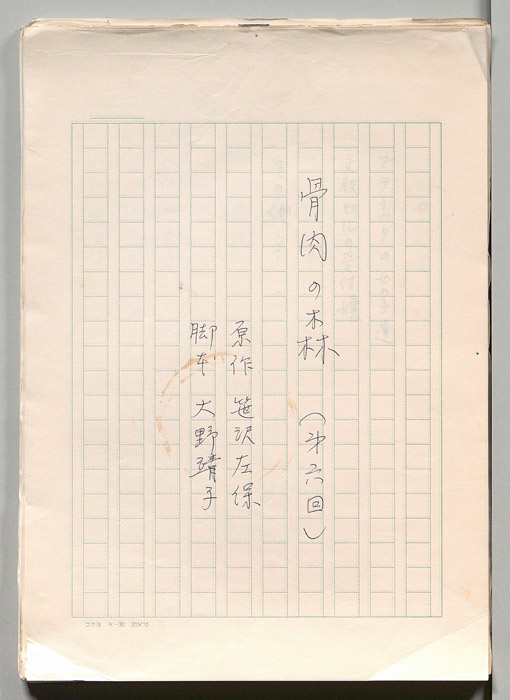 骨肉の森 (第六回)
原作 笹沢左保
脚本 大野靖子
コクヨ ケー10 20×10